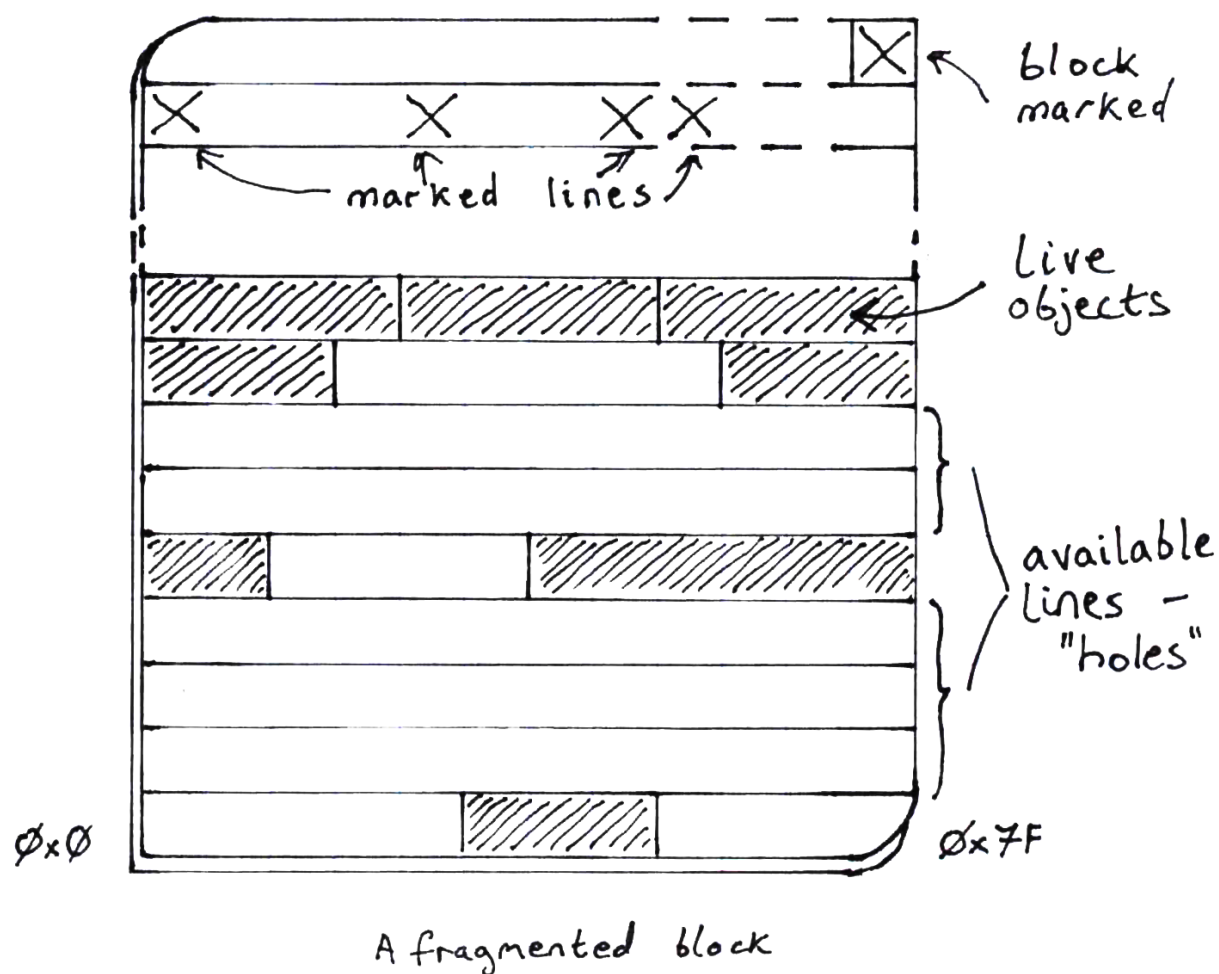 block
marked
marked lines
Live
objects
available
lines -
"holes"
0x0
0x7F
A fragmented block